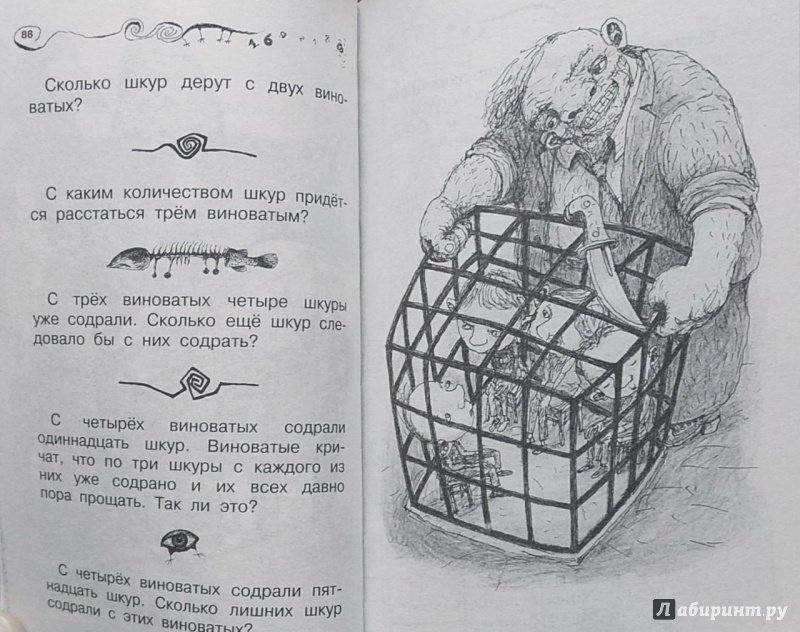 88
Сколько шкур дерут с двух вино-
ватых?
С каким количеством шкур придёт-
ся расстаться трём виноватым?
С трёх виноватых четыре шкуры
уже содрали. Сколько ещё шкур сле-
довало бы с них содрать?
С четырёх виноватых содрали
одиннадцать шкур. Виноватые кри-
чат, что по три шкуры с каждого из
них уже содрано и их всех давно
пора прощать. Так ли это?
С четырёх виноватых содрали пят-
надцать шкур. Сколько лишних шкур
содрали с этих виноватых?
Лабиринт.ру